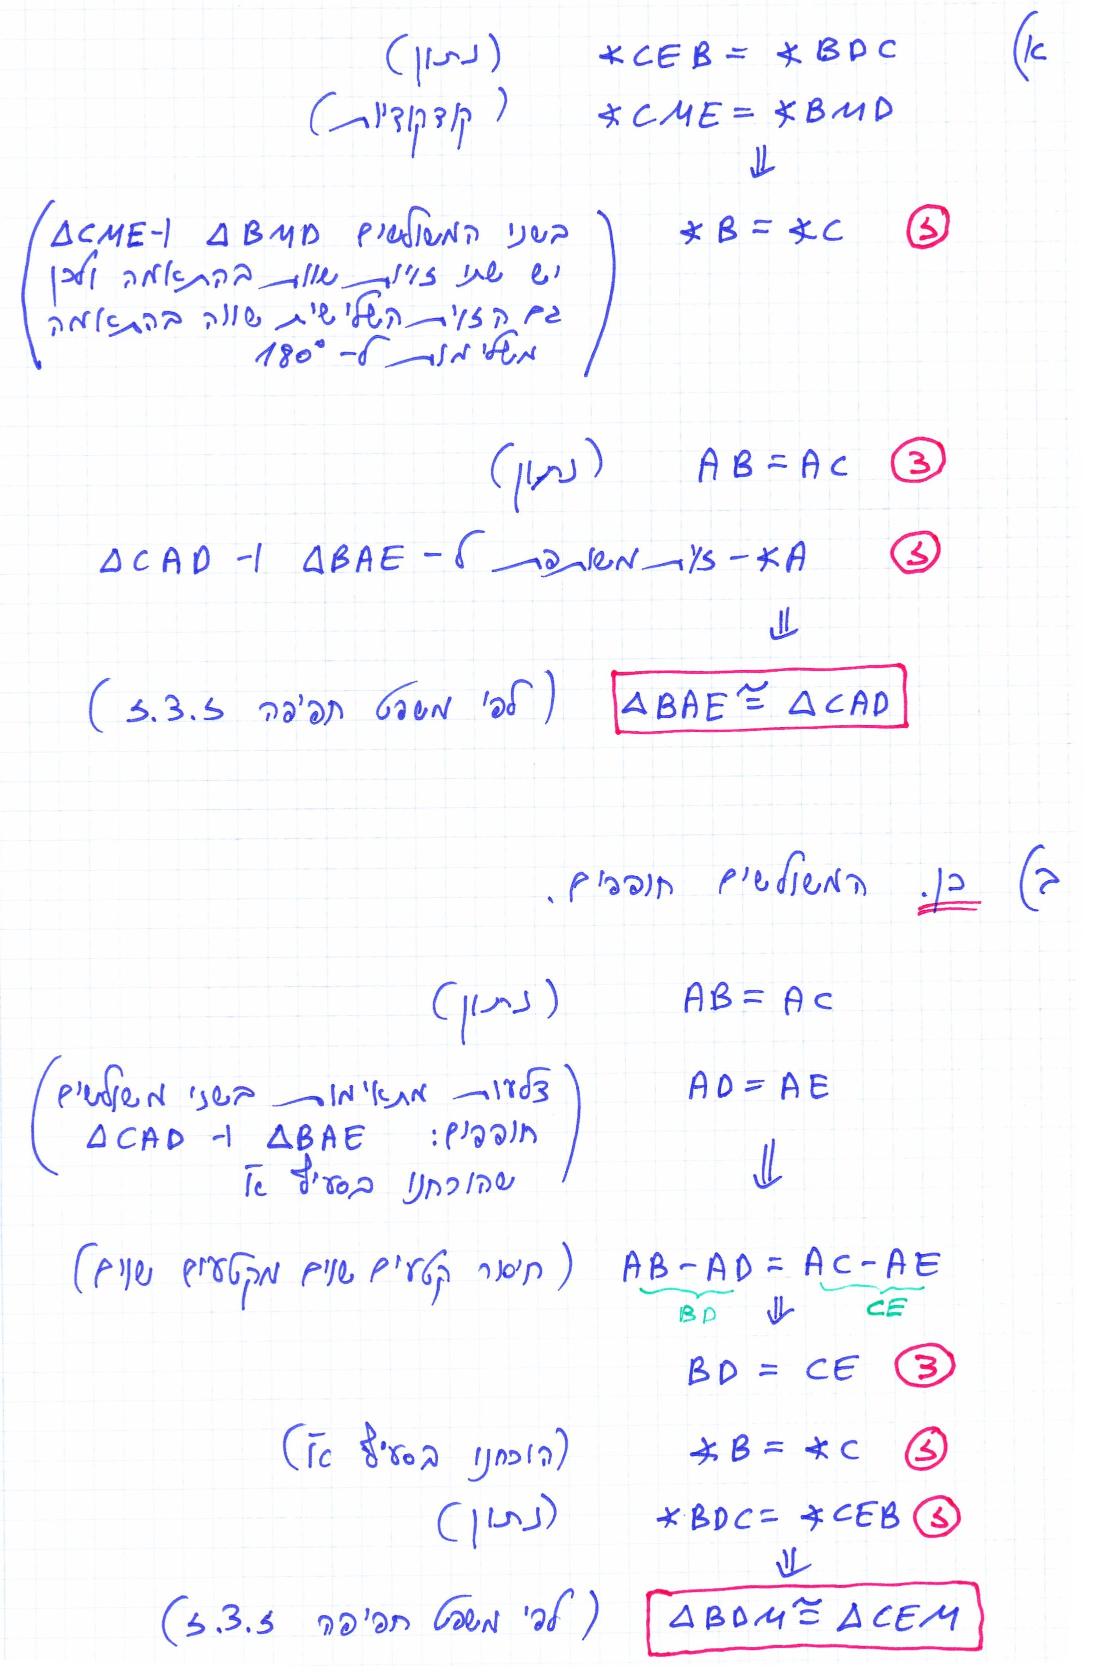 א) ∢CEB = ∢BDC (נתון)
∢CME = ∢BMD (קודקודיות)
⇓
ז ∢B = ∢C (בשני המשולשים ΔBMD ו-ΔCME
יש שתי זוויות שוות בהתאמה ולכן
גם הזווית השלישית שווה בהתאמה
משלימות ל-180°)
צ AB = AC (נתון)
ז ∢A - זווית משותפת ל-ΔBAE ו-ΔCAD
⇓
ΔBAE ≅ ΔCAD (לפי משפט חפיפה ז.צ.ז)
ב) כן. המשולשים חופפים.
AB = AC (נתון)
AD = AE (צלעות מתאימות בשני משולשים
חופפים: ΔBAE ו-ΔCAD
שהוכחנו בסעיף א')
⇓
AB - AD = AC - AE (חיסור קטעים שווים מקטעים שווים)
BD ⇓ CE
צ BD = CE
ז ∢B = ∢C (הוכחנו בסעיף א')
ז ∢BDC = ∢CEB (נתון)
⇓
ΔBDM ≅ ΔCEM (לפי משפט חפיפה ז.צ.ז)